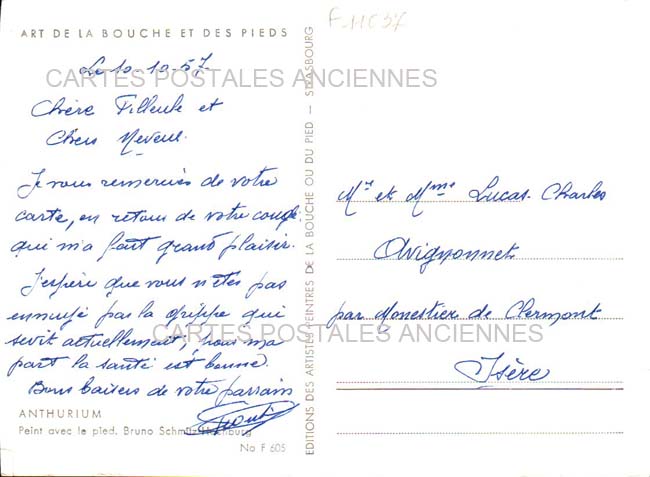 ART DE LA BOUCHE ET DES PIEDS
Le 10-10-57
CARTES POSTALES ANCIENNES
Chère Filleule et
Chers Neveu.
Je vous remercies de votre
carte, en retour de votre
qui m'a fait grand plaisir.
J'espère que vous n'êtes pas
ennuyé par la grippe qui
sevit actuellement, pour ma
CARTES POSTALES ANCIENNES
part la santé est bonne.
Bons baisers de votre parrain
ANTHURIUM
Peint avec le pied. Bruno Schmitz-Hochburg
No F 605
EDITIONS DES ARTISTES PEINTRES DE LA BOUCHE OU DU PIED — STRASBOURG
Mr et Mme Lucas Charles
Avignonnet
par Monestier de Clermont
Isère